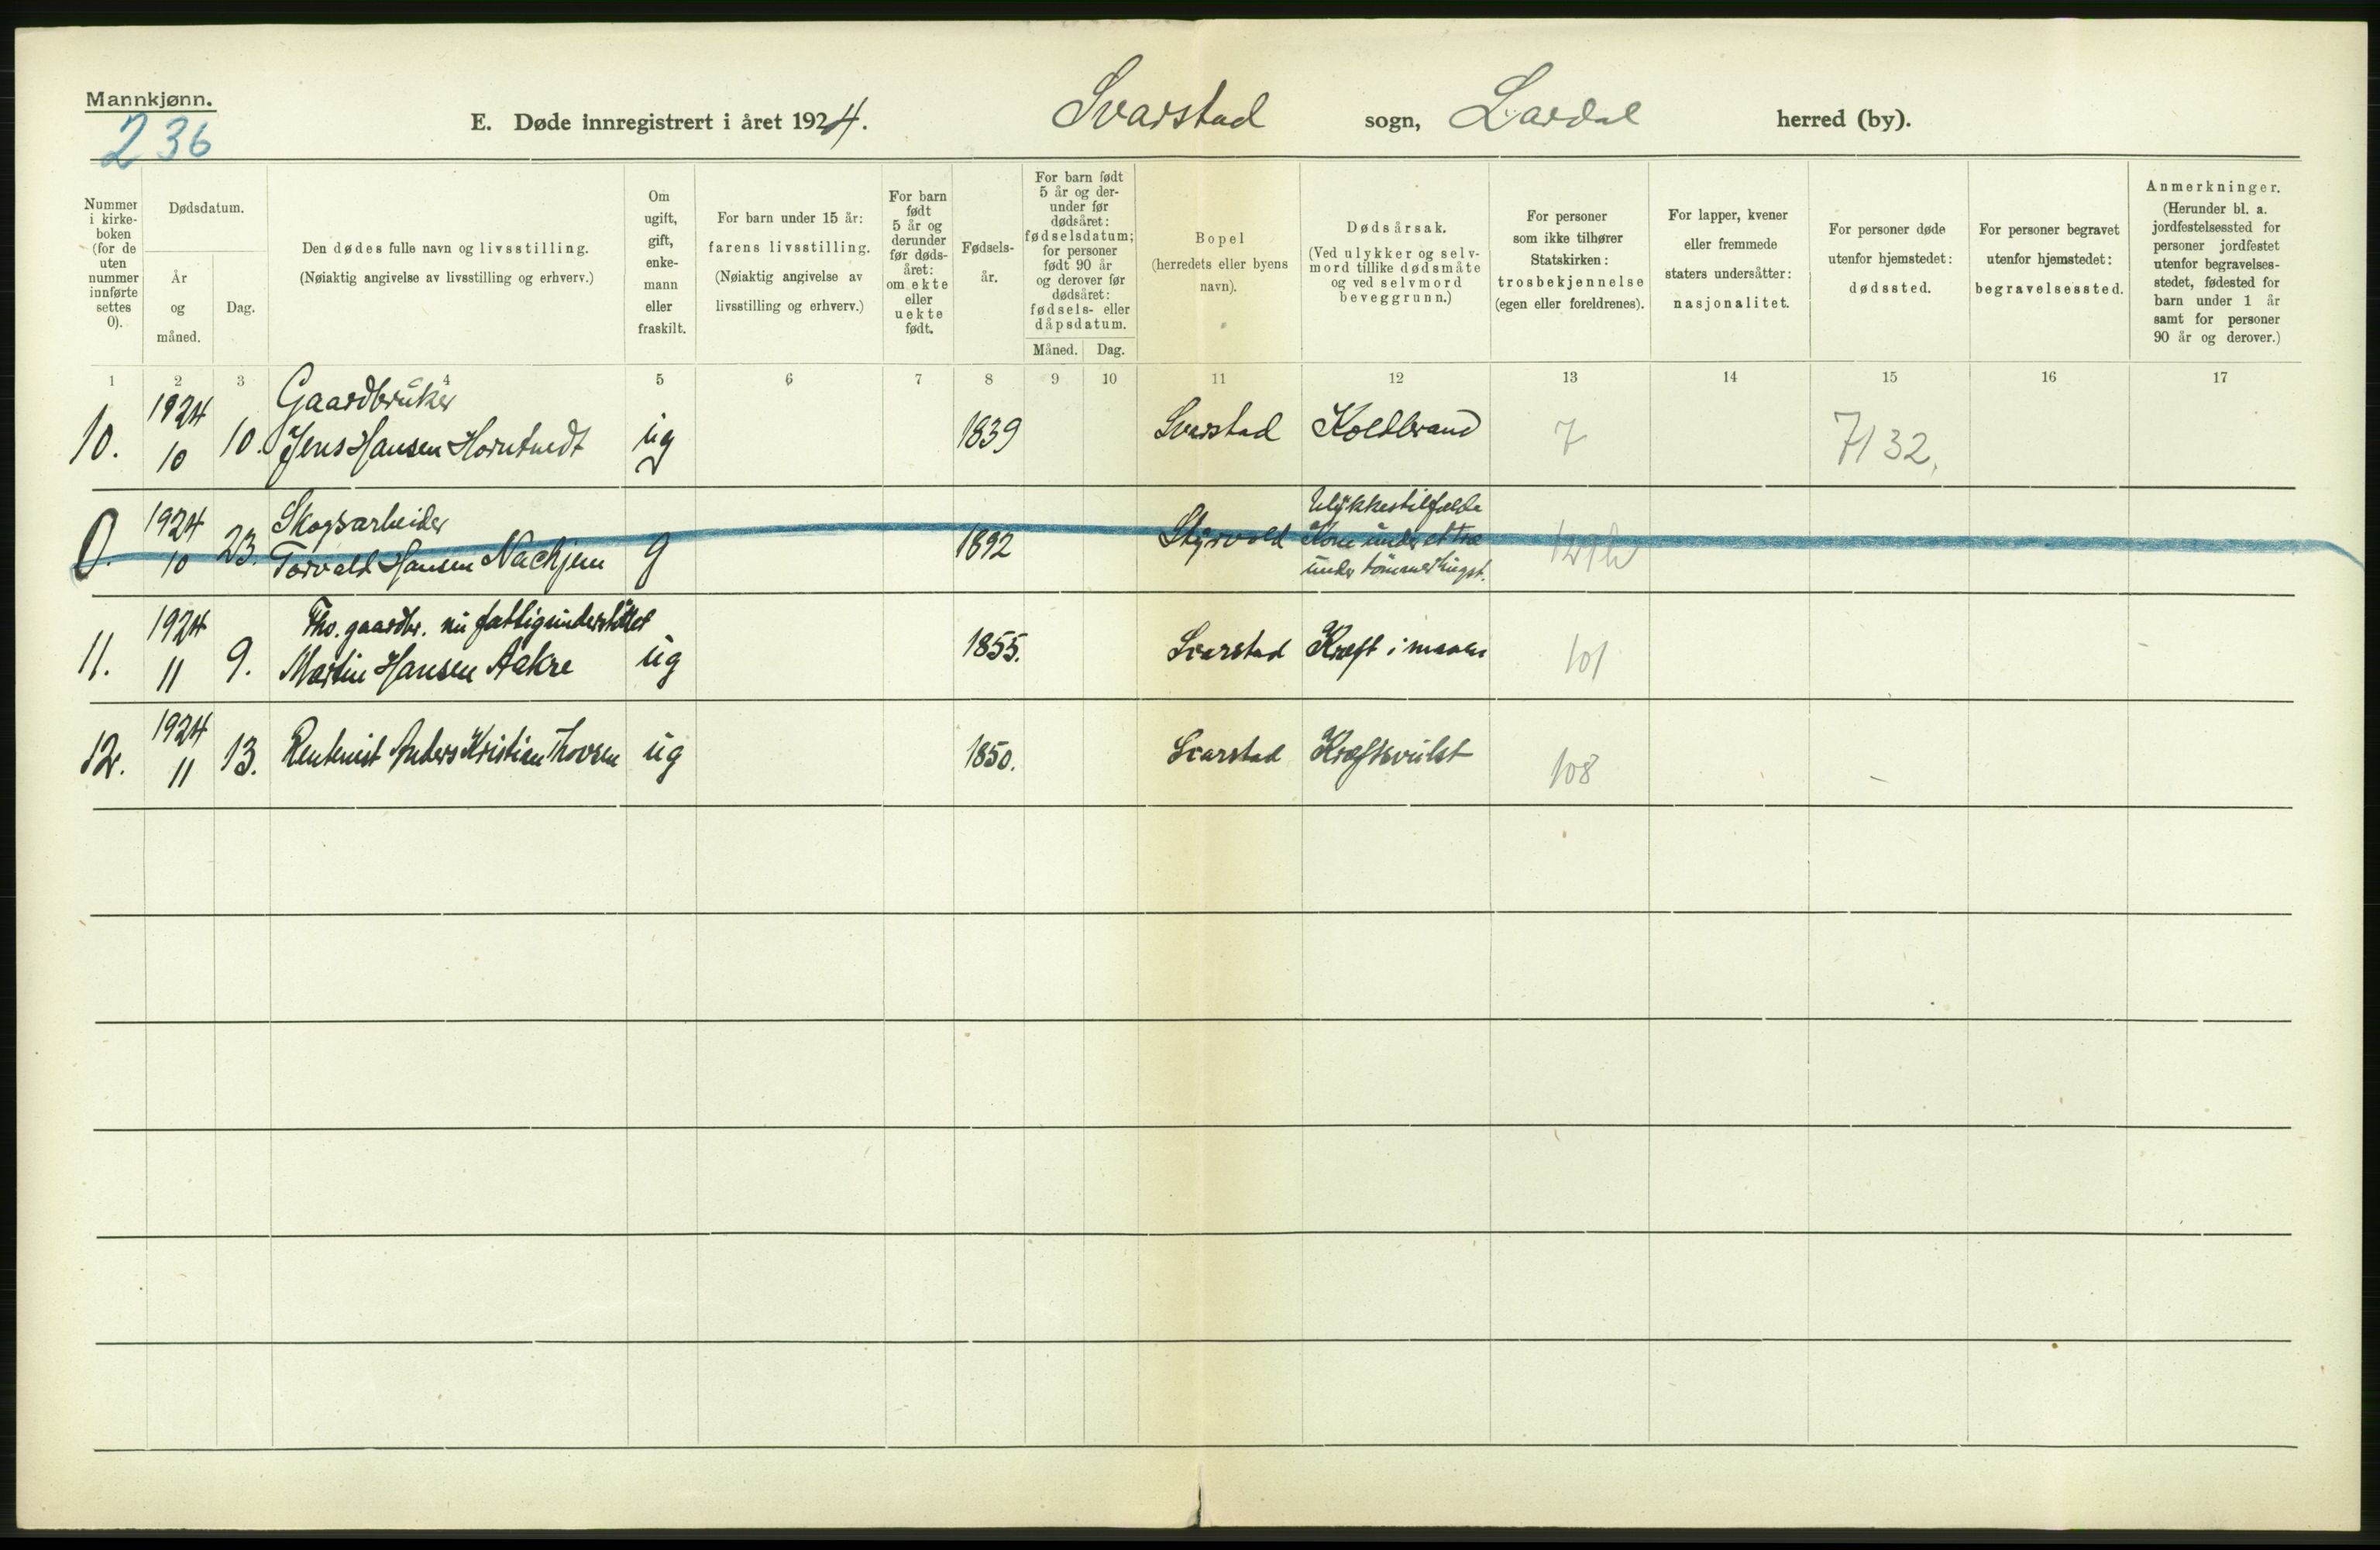 Mannkjønn.
236
E. Døde innregistrert i året 1924.
Svarstad sogn, Lardal herred (by).
Nummer i kirke-boken (for de uten nummer innførte settes 0).
Dødsdatum.
År og måned.
Dag.
Den dødes fulle navn og livsstilling.
(Nøiaktig angivelse av livsstilling og erhverv.)
Om ugift, gift, enke-mann eller fraskilt.
For barn under 15 år:
farens livsstilling.
(Nøiaktig angivelse av livsstilling og erhverv.)
For barn født 5 år og derunder før døds-året: om ekte eller uekte født.
Fødsels-år.
For barn født 5 år og der-under før dødsåret: fødselsdatum; for personer født 90 år og derover før dødsåret: fødsels- eller dåpsdatum.
Måned. Dag.
Bopel
(herredets eller byens navn).
Dødsårsak.
(Ved ulykker og selv-mord tillike dødsmåte og ved selvmord beveggrunn.)
For personer som ikke tilhører Statskirken: trosbekjennelse (egen eller foreldrenes).
For lapper, kvener eller fremmede staters undersåtter: nasjonalitet.
For personer døde utenfor hjemstedet: dødssted.
For personer begravet utenfor hjemstedet: begravelsessted.
Anmerkninger.
(Herunder bl. a. jordfestelsessted for personer jordfestet utenfor begravelses-stedet, fødested for barn under 1 år samt for personer 90 år og derover.)
1 2 3 4 5 6 7 8 9 10 11 12 13 14 15 16 17
1924 Gaardbruker
10. 10 10. Jens Hansen ug 1839 Svarstad Koldbrand 7 7132.
1924 Skogsarbeider Ulykkestilfælde
0. 10 23. Torvald Hansen g 1892 Styrvold Kom under et træ
under tømmerhugst.
1924 Fho. gaardbr. nu fattigunderstöttet
11. 11 9. Martin Hansen Aakre ug 1855. Svarstad Kræft i maven 101
1924
12. 11 13. Rentenist Anders Kristian Thovsen ug 1850. Svarstad Kræftsvulst 108